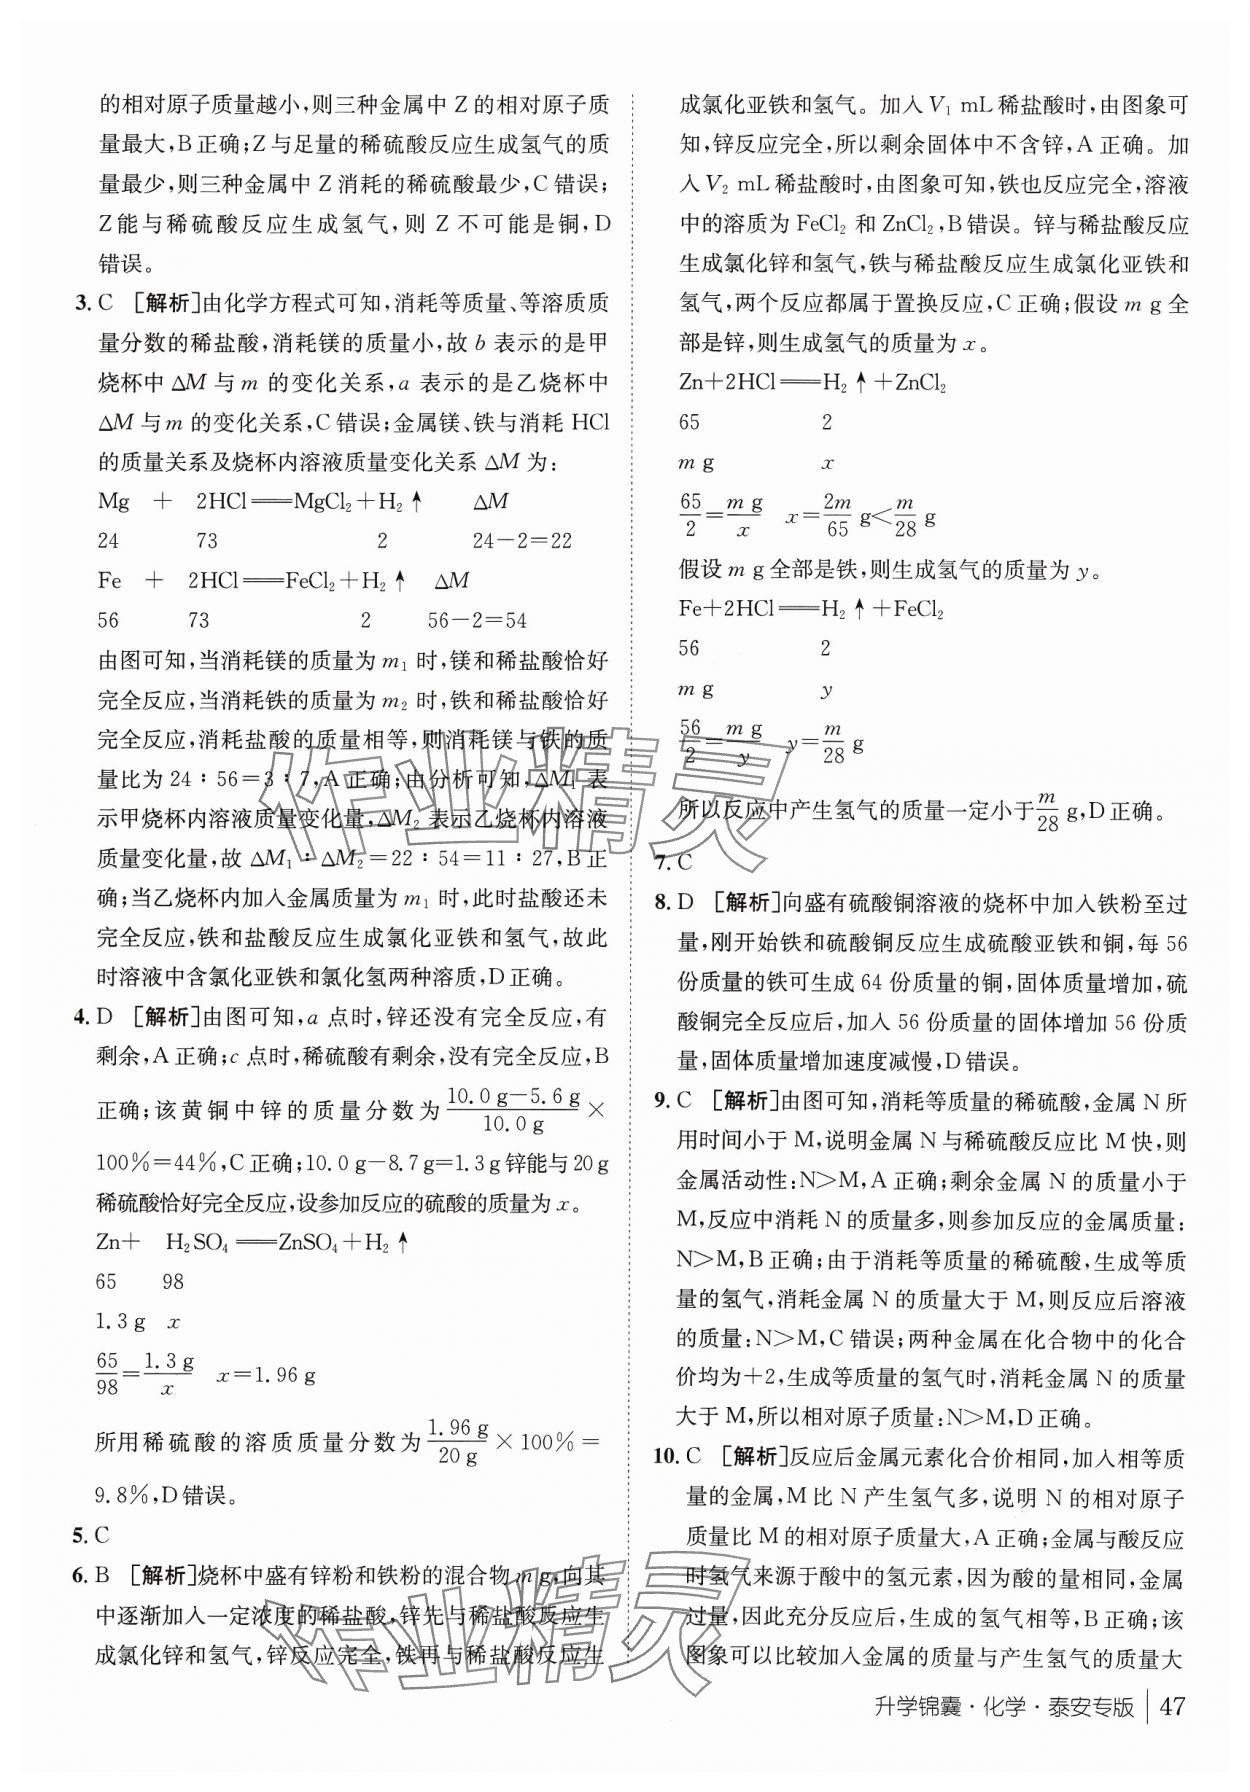 的相对原子质量越小,则三种金属中 Z 的相对原子质
量最大,B 正确;Z 与足量的稀硫酸反应生成氢气的质
量最少,则三种金属中 Z 消耗的稀硫酸最少,C 错误;
Z 能与稀硫酸反应生成氢气,则 Z 不可能是铜,D
错误。
3. C [解析]由化学方程式可知,消耗等质量、等溶质质
量分数的稀盐酸,消耗镁的质量小,故 b 表示的是甲
烧杯中 ΔM 与 m 的变化关系,a 表示的是乙烧杯中
ΔM 与 m 的变化关系,C 错误;金属镁、铁与消耗 HCl
的质量关系及烧杯内溶液质量变化关系 ΔM 为:
Mg + 2HCl══MgCl₂+H₂↑ ΔM
24 73 2 24-2=22
Fe + 2HCl══FeCl₂+H₂↑ ΔM
56 73 2 56-2=54
由图可知,当消耗镁的质量为 m₁ 时,镁和稀盐酸恰好
完全反应,当消耗铁的质量为 m₂ 时,铁和稀盐酸恰好
完全反应,消耗盐酸的质量相等,则消耗镁与铁的质
量比为 24∶56=3∶7,A 正确;由分析可知,ΔM₁ 表
示甲烧杯内溶液质量变化量,ΔM₂ 表示乙烧杯内溶液
质量变化量,故 ΔM₁∶ΔM₂=22∶54=11∶27,B 正
确;当乙烧杯内加入金属质量为 m₁ 时,此时盐酸还未
完全反应,铁和盐酸反应生成氯化亚铁和氢气,故此
时溶液中含氯化亚铁和氯化氢两种溶质,D 正确。
4. D [解析]由图可知,a 点时,锌还没有完全反应,有
剩余,A 正确;c 点时,稀硫酸有剩余,没有完全反应,B
正确;该黄铜中锌的质量分数为 (10.0 g-5.6 g)/10.0 g ×
100%=44%,C 正确;10.0 g-8.7 g=1.3 g 锌能与 20 g
稀硫酸恰好完全反应,设参加反应的硫酸的质量为 x。
Zn+ H₂SO₄══ZnSO₄+H₂↑
65 98
1.3 g x
65/98=1.3 g/x x=1.96 g
所用稀硫酸的溶质质量分数为 1.96 g/20 g ×100%=
9.8%,D 错误。
5. C
6. B [解析]烧杯中盛有锌粉和铁粉的混合物 m g,向其
中逐渐加入一定浓度的稀盐酸,锌先与稀盐酸反应生
成氯化锌和氢气,锌反应完全,铁再与稀盐酸反应生
成氯化亚铁和氢气。加入 V₁ mL 稀盐酸时,由图象可
知,锌反应完全,所以剩余固体中不含锌,A 正确。加
入 V₂ mL 稀盐酸时,由图象可知,铁也反应完全,溶液
中的溶质为 FeCl₂ 和 ZnCl₂,B 错误。锌与稀盐酸反应
生成氯化锌和氢气,铁与稀盐酸反应生成氯化亚铁和
氢气,两个反应都属于置换反应,C 正确;假设 m g 全
部是锌,则生成氢气的质量为 x。
Zn+2HCl══H₂↑+ZnCl₂
65 2
m g x
65/2=m g/x x=2m/65 g<m/28 g
假设 m g 全部是铁,则生成氢气的质量为 y。
Fe+2HCl══H₂↑+FeCl₂
56 2
m g y
56/2=m g/y y=m/28 g
所以反应中产生氢气的质量一定小于 m/28 g,D 正确。
7. C
8. D [解析]向盛有硫酸铜溶液的烧杯中加入铁粉至过
量,刚开始铁和硫酸铜反应生成硫酸亚铁和铜,每 56
份质量的铁可生成 64 份质量的铜,固体质量增加,硫
酸铜完全反应后,加入 56 份质量的固体增加 56 份质
量,固体质量增加速度减慢,D 错误。
9. C [解析]由图可知,消耗等质量的稀硫酸,金属 N 所
用时间小于 M,说明金属 N 与稀硫酸反应比 M 快,则
金属活动性:N>M,A 正确;剩余金属 N 的质量小于
M,反应中消耗 N 的质量多,则参加反应的金属质量:
N>M,B 正确;由于消耗等质量的稀硫酸,生成等质
量的氢气,消耗金属 N 的质量大于 M,则反应后溶液
的质量:N>M,C 错误;两种金属在化合物中的化合
价均为+2,生成等质量的氢气时,消耗金属 N 的质量
大于 M,所以相对原子质量:N>M,D 正确。
10. C [解析]反应后金属元素化合价相同,加入相等质
量的金属,M 比 N 产生氢气多,说明 N 的相对原子
质量比 M 的相对原子质量大,A 正确;金属与酸反应
时氢气来源于酸中的氢元素,因为酸的量相同,金属
过量,因此充分反应后,生成的氢气相等,B 正确;该
图象可以比较加入金属的质量与产生氢气的质量大
升学锦囊·化学·泰安专版 47
作业精灵
作业精灵